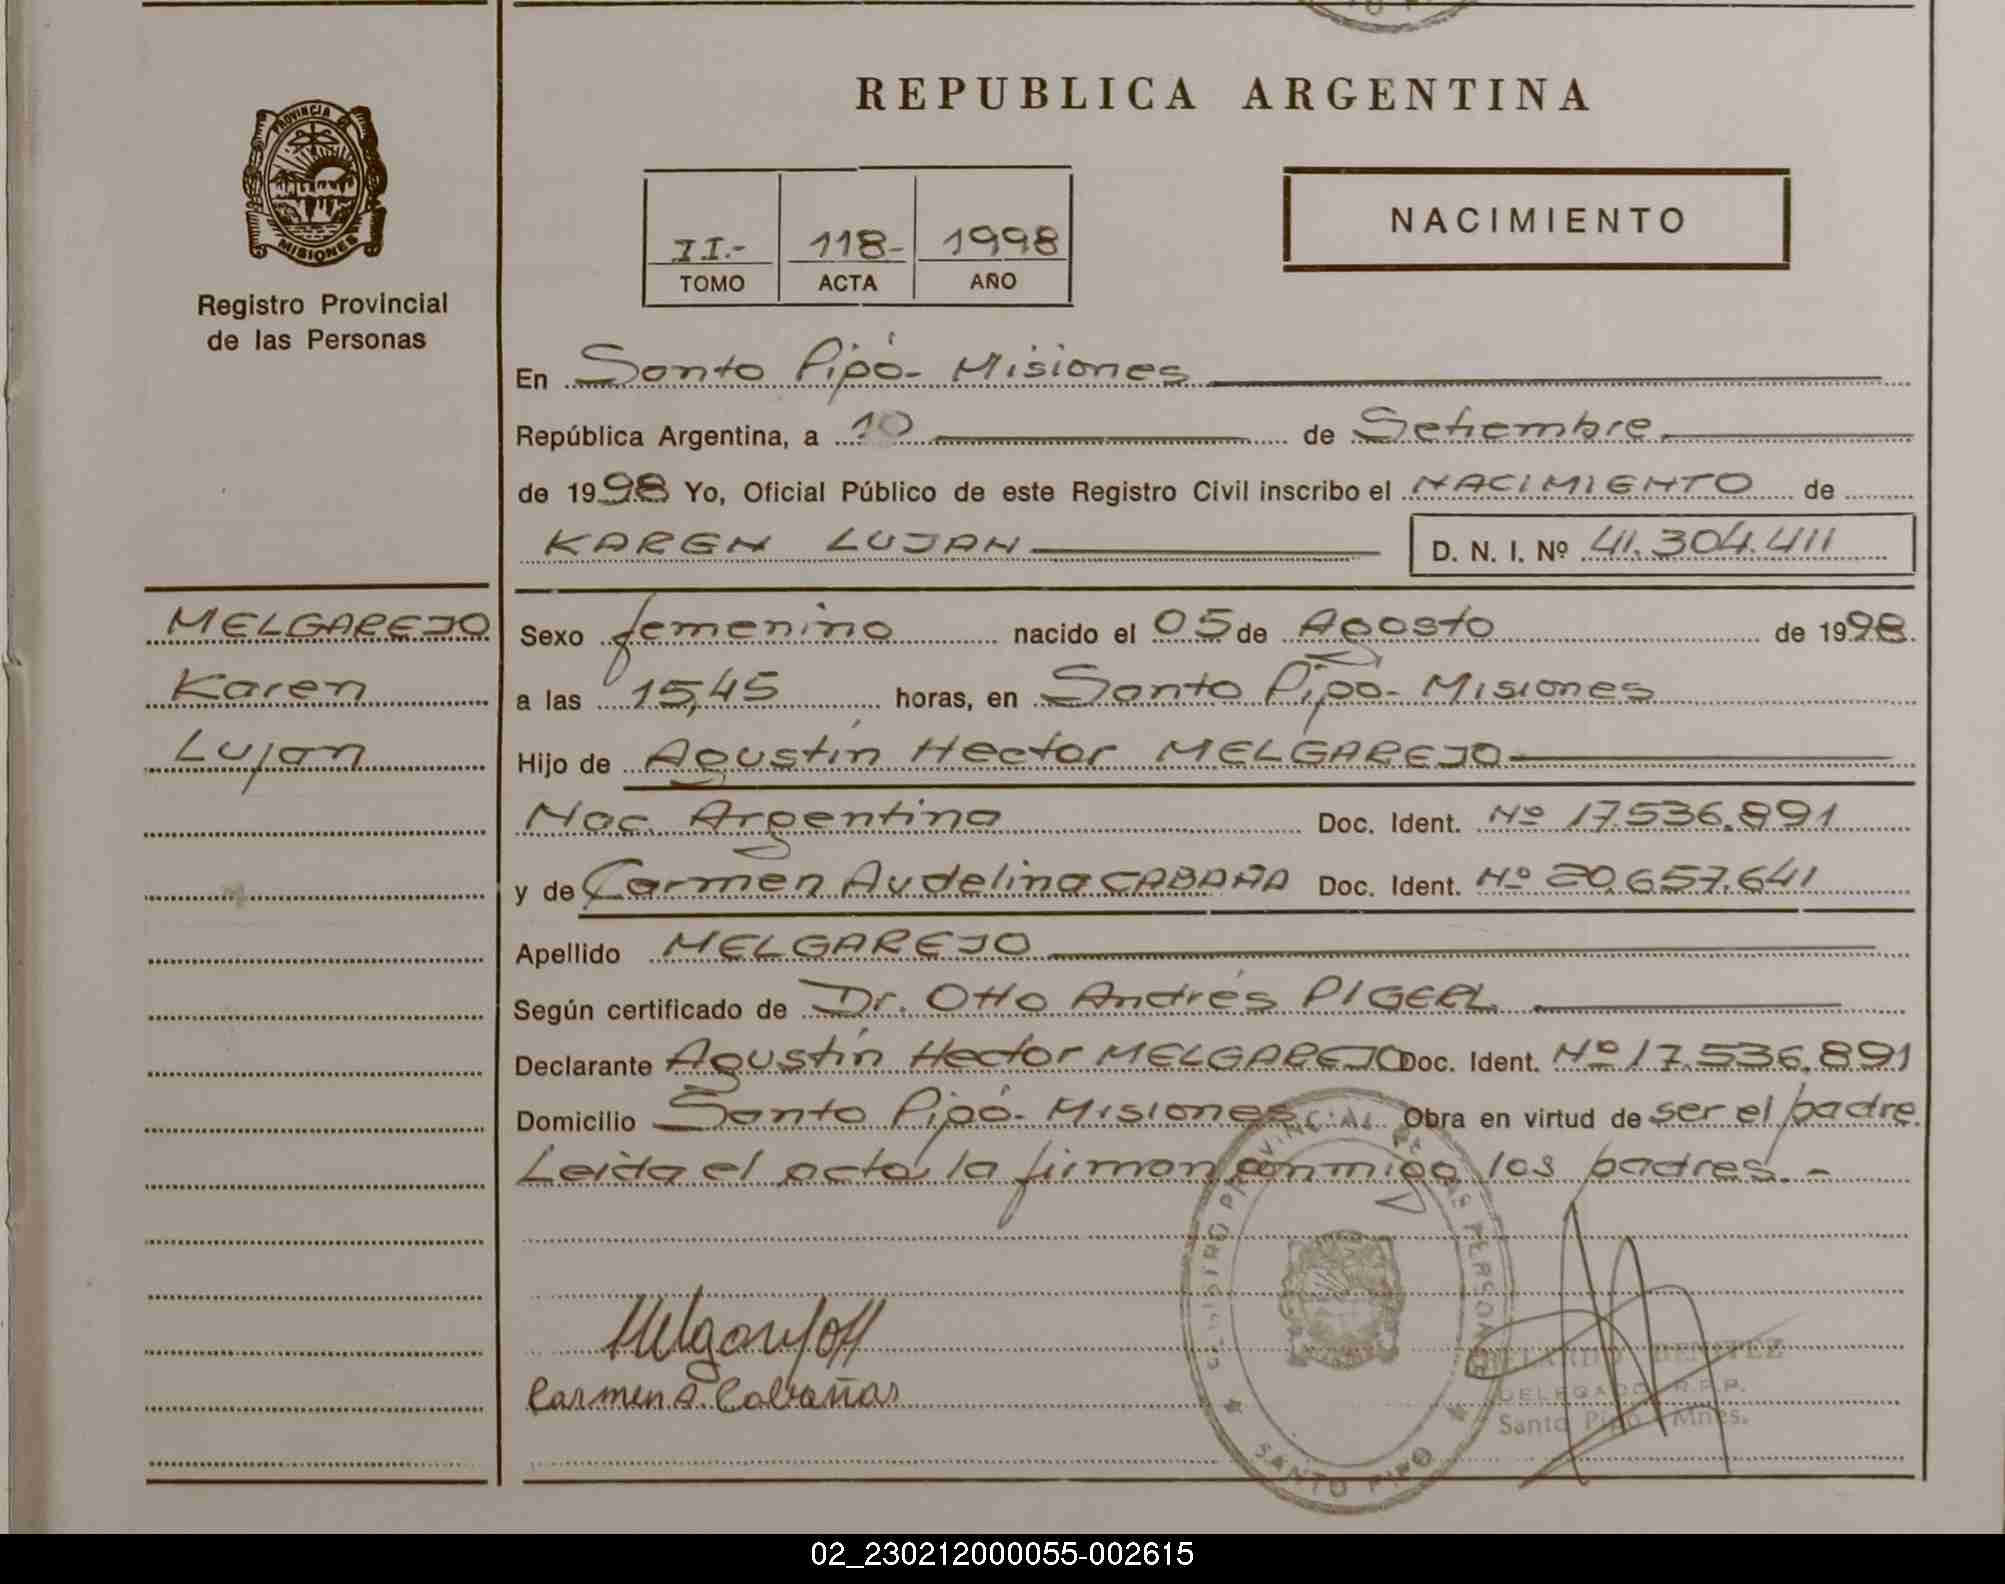 REPUBLICA ARGENTINA
PROVINCIA DE
MISIONES
Registro Provincial
de las Personas
II.- 118- 1998
TOMO ACTA AÑO
NACIMIENTO
En Santo Pipó- Misiones
República Argentina, a 10 de Setiembre
de 1998 Yo, Oficial Público de este Registro Civil inscribo el NACIMIENTO de
KAREN LUJAN D. N. I. Nº 41.304.411
MELGAREJO
Karen
Lujan
Sexo femenino nacido el 05 de Agosto de 1998
a las 15,45 horas, en Santo Pipó- Misiones
Hijo de Agustín Hector MELGAREJO
Nac. Argentina Doc. Ident. Nº 17.536.891
y de Carmen Audelina CABAÑA Doc. Ident. Nº 20.657.641
Apellido MELGAREJO
Según certificado de Dr. Otto Andrés PIGERL
Declarante Agustín Hector MELGAREJO Doc. Ident. Nº 17.536.891
Domicilio Santo Pipó- Misiones Obra en virtud de ser el padre.
Leida el acta, la firman conmigo los padres.-
Carmen A. Cabañas
REGISTRO PROVINCIAL DE LAS PERSONAS
SANTO PIPO
BENITEZ
DELEGADO R.P.P.
Santo Pipó - Mnes.
02_230212000055-002615